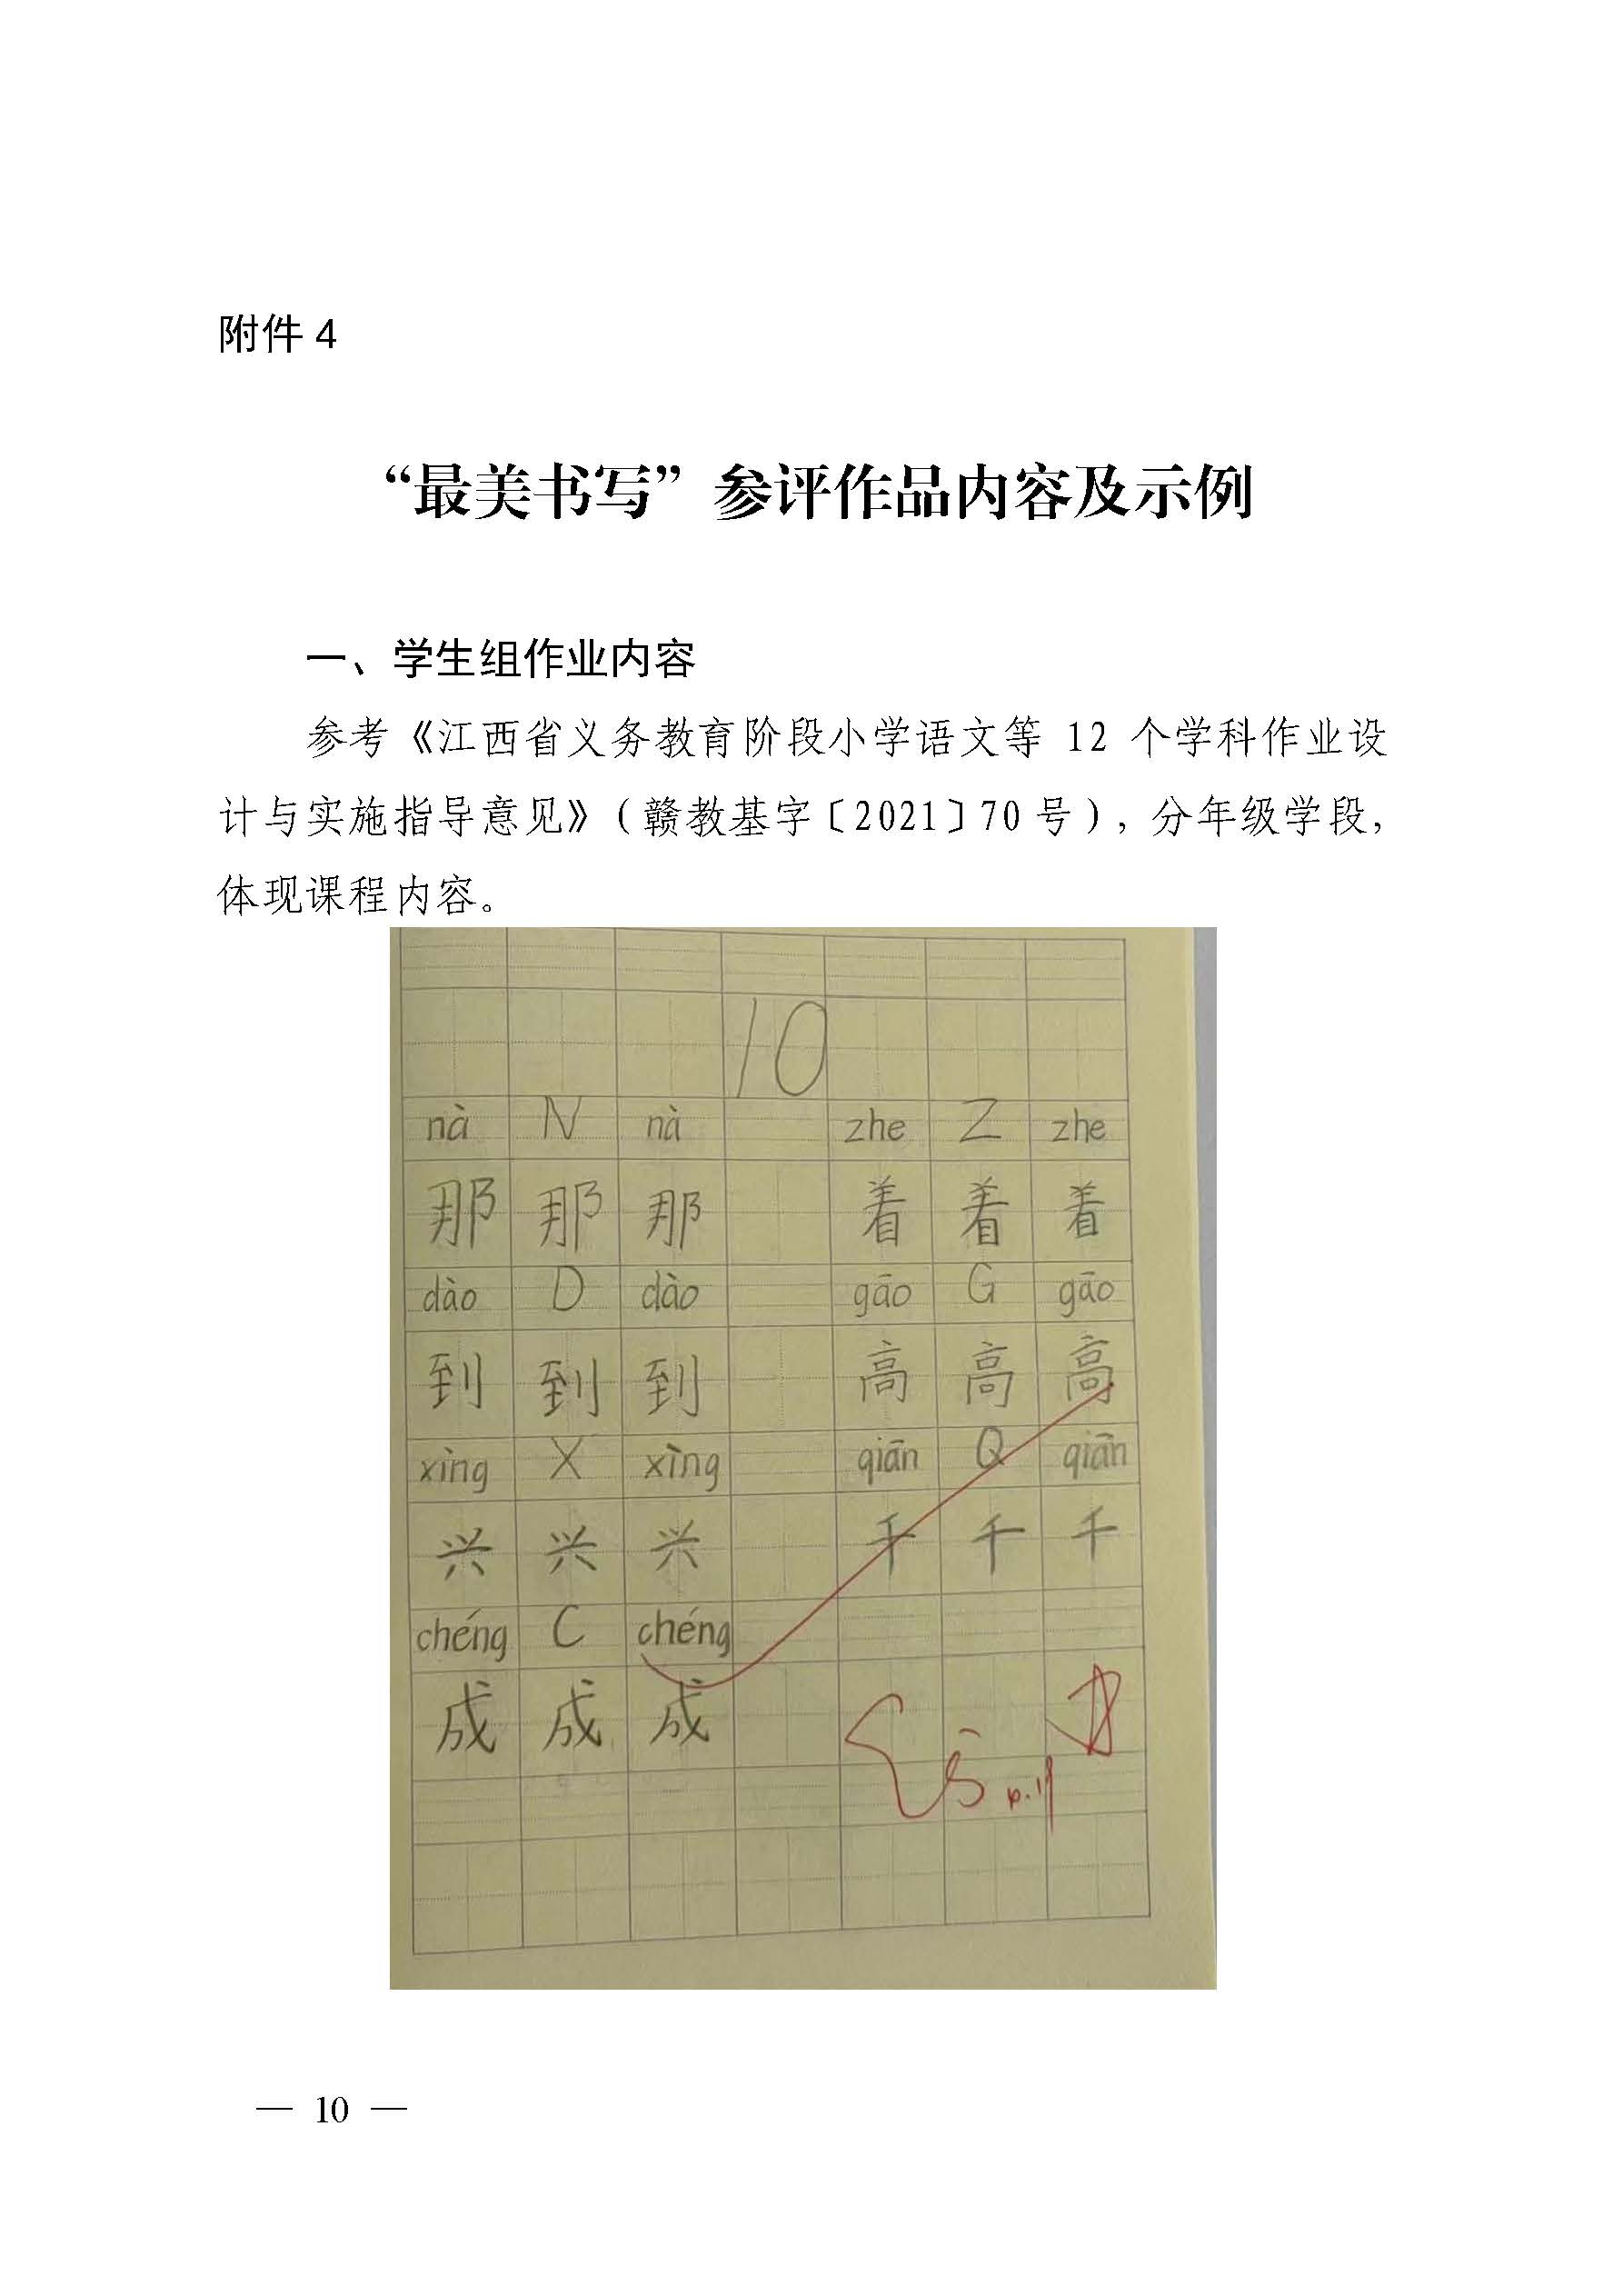 附件4
“最美书写”参评作品内容及示例
一、学生组作业内容
参考《江西省义务教育阶段小学语文等 12 个学科作业设
计与实施指导意见》（赣教基字〔2021〕70 号），分年级学段，
体现课程内容。
10
nà N nà zhe Z zhe
那 那 那 着 着 着
dào D dào gāo G gāo
到 到 到 高 高 高
xìng X xìng qiān Q qiān
兴 兴 兴 千 千 千
chéng C chéng
成 成 成
— 10 —